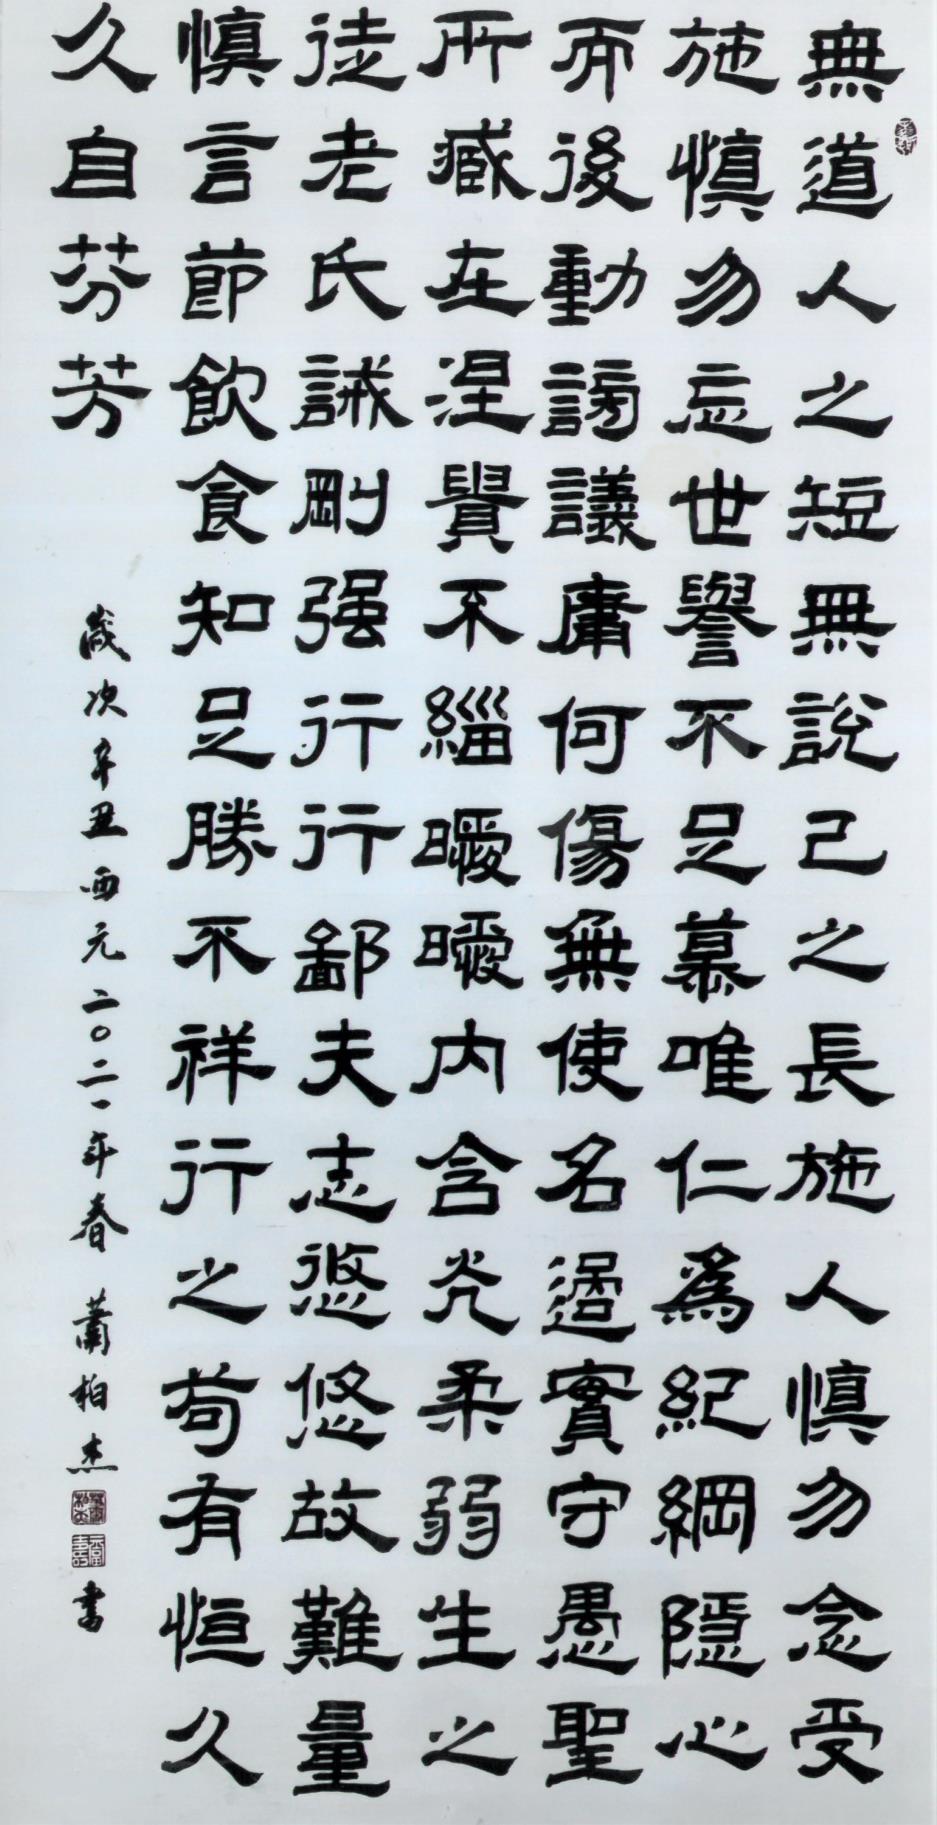 無道人之短無說己之長施人慎勿念受
施慎勿忘世譽不足慕唯仁爲紀綱隱心
而後動謗議庸何傷無使名過實守愚聖
所臧在涅貴不緇曖曖内含光柔弱生之
徒老氏誡剛强行行鄙夫志悠悠故難量
慎言節飲食知足勝不祥行之苟有恒久
久自芬芳
歲次辛丑西元二〇二一年春 蕭柏杰 書